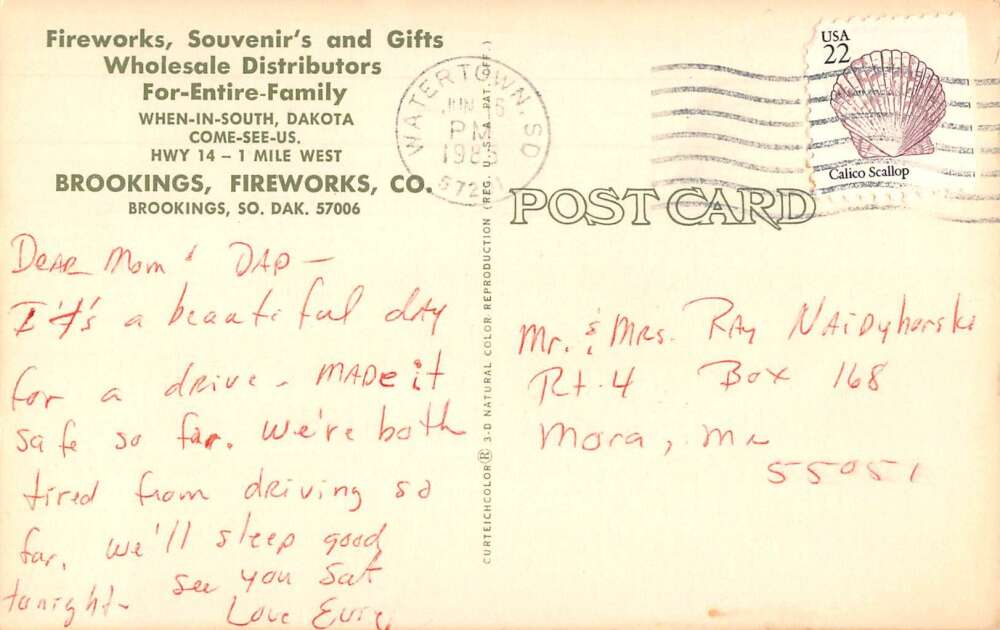 Fireworks, Souvenir's and Gifts
Wholesale Distributors
For-Entire-Family
WHEN-IN-SOUTH, DAKOTA
COME-SEE-US.
HWY 14 – 1 MILE WEST
BROOKINGS, FIREWORKS, CO.
BROOKINGS, SO. DAK. 57006
DEAR Mom & DAD –
It's a beautiful day
for a drive – MADE it
safe so far. We're both
tired from driving so
far. We'll sleep good
tonight – See you Sat
Love
CURTEICHCOLOR® 3-D NATURAL COLOR REPRODUCTION (REG. U.S.A. PAT. OFF.)
WATERTOWN, SD
JUN
PM
USA
22
Calico Scallop
POST CARD
Mr. & Mrs. RAY
Rt. 4 Box 168
Mora, Mn
55051